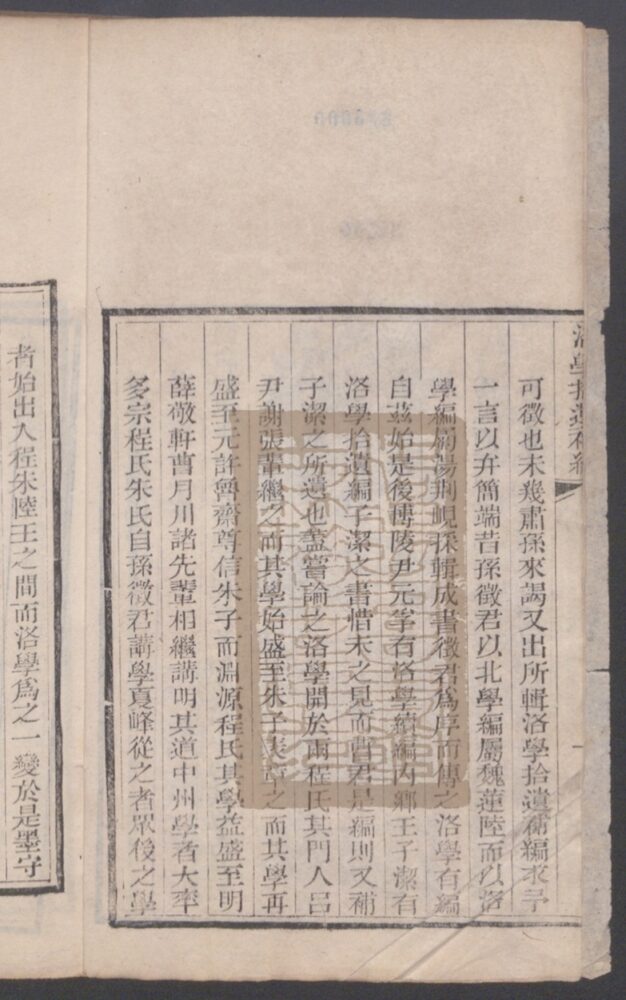 洛學拾遺補編
可徵也未幾肅孫來謁又出所輯洛學拾遺補編求予
一言以弁簡端昔孫徵君以北學編屬魏蓮陸而以洛
學編屬湯荆峴採輯成書徵君為序而傳之洛學有編
自茲始是後博陵尹元孚有洛學續編內鄉王子潔有
洛學拾遺編子潔之書惜未之見而曹君是編則又補
子潔之所遺也蓋嘗論之洛學開於兩程氏其門人呂
尹謝張輩繼之而其學始盛至朱子表章之而其學再
盛至元許魯齋尊信朱子而淵源程氏其學益盛至明
薛敬軒曹月川諸先輩相繼講明其道中州學者大率
多宗程氏朱氏自孫徵君講學夏峰從之者眾後之學
者始出入程朱陸王之間而洛學為之一變於是墨守